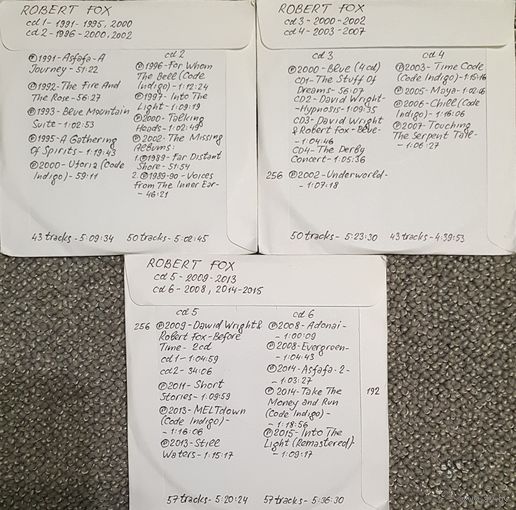 ROBERT FOX
cd 1 - 1991-1995, 2000
cd 2 - 1996-2000, 2002
℗1991-Asfafa-A
Journey - 51:22
℗1992-The Fire And
The Rose - 56:27
℗1993-Blue Mountain
Suite - 1:02:53
℗1995-A Gathering
Of Spirits - 1:19:43
℗2000-Utoria (Code
Indigo) - 59:11
cd 2
℗1996-For Whom
The Bell (Code
Indigo) - 1:12:24
℗1997-Into The
Light - 1:09:19
℗2000-Talking
Heads - 1:02:49
℗2002-The Missing
Albums:
1.℗1989-Far Distant
Shore - 51:54
2.℗1989-90-Voices
From The Inner Ear -
- 46:21
43 tracks - 5:09:34
50 tracks - 5:02:45
ROBERT FOX
cd 3 - 2000-2002
cd 4 - 2003-2007
cd 3
℗2000-Blue (4cd)
CD1-The Stuff Of
Dreams - 56:07
CD2-David Wright-
-Hypnosis - 1:09:35
CD3-David Wright
& Robert Fox-Blue-
- 1:04:46
CD4-The Derby
Concert - 1:05:36
256 ℗2002-Underworld-
- 1:07:18
cd 4
℗2003-Time Code
(Code Indigo) - 1:15:16
℗2005-Maya - 1:02:35
℗2006-Chill (Code
Indigo) - 1:16:06
℗2007-Touching
The Serpent Tail -
- 1:06:27
50 tracks - 5:23:30
43 tracks - 4:39:53
ROBERT FOX
cd 5 - 2009-2013
cd 6 - 2008, 2014-2015
cd 5
256 ℗2009-Dawid Wright &
Robert Fox-Before
Time - 2cd
cd 1 - 1:04:59
cd 2 - 34:06
℗2011-Short
Stories - 1:09:59
℗2013-MELTdown
(Code Indigo) -
- 1:16:06
℗2013-Still
Waters - 1:15:17
cd 6
℗2008-Adonai -
- 1:00:09
℗2008-Evergreen -
- 1:04:43
℗2014-Asfafa-2 -
- 1:03:27
℗2014-Take The
Money and Run
(Code Indigo) -
- 1:18:56
℗2015-Into The
Light (Remastered) -
- 1:09:17
192
57 tracks - 5:20:24
57 tracks - 5:36:30